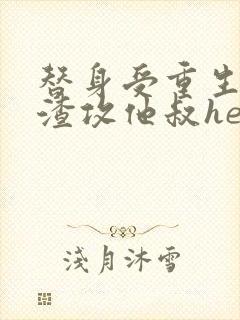 替身受重生
渣攻他叔he
淺月沐雪